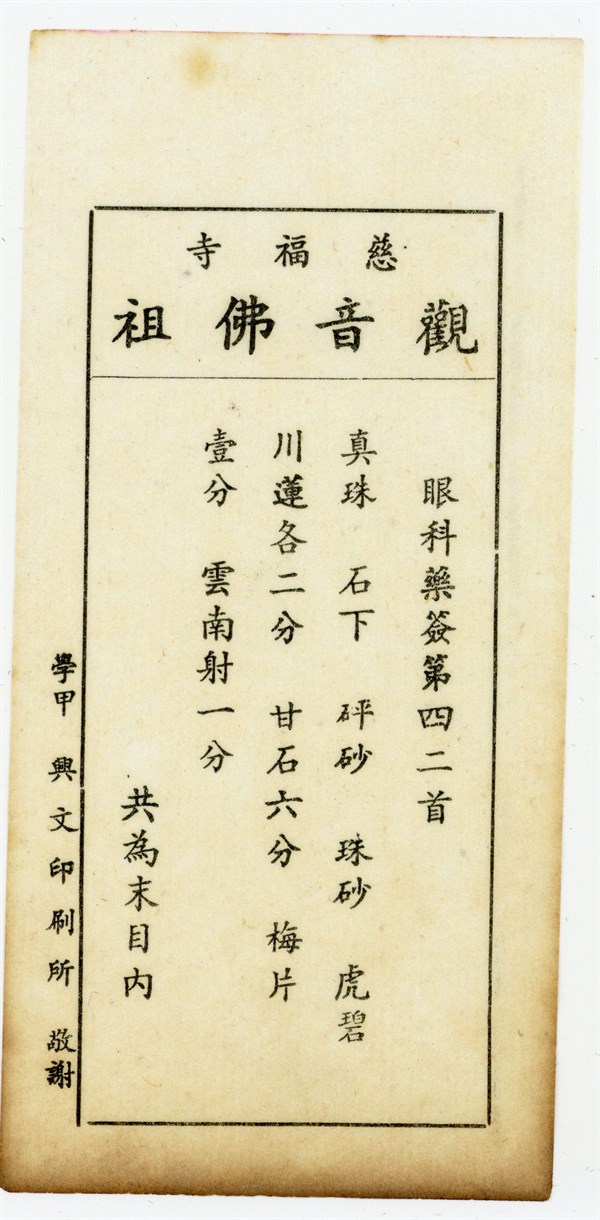 慈福寺
觀音佛祖
眼科藥簽第四二首
真珠　石下　砰砂　珠砂　虎碧
川蓮各二分　甘石六分　梅片
壹分　雲南射一分
共為末目內
學甲　興文印刷所　敬謝